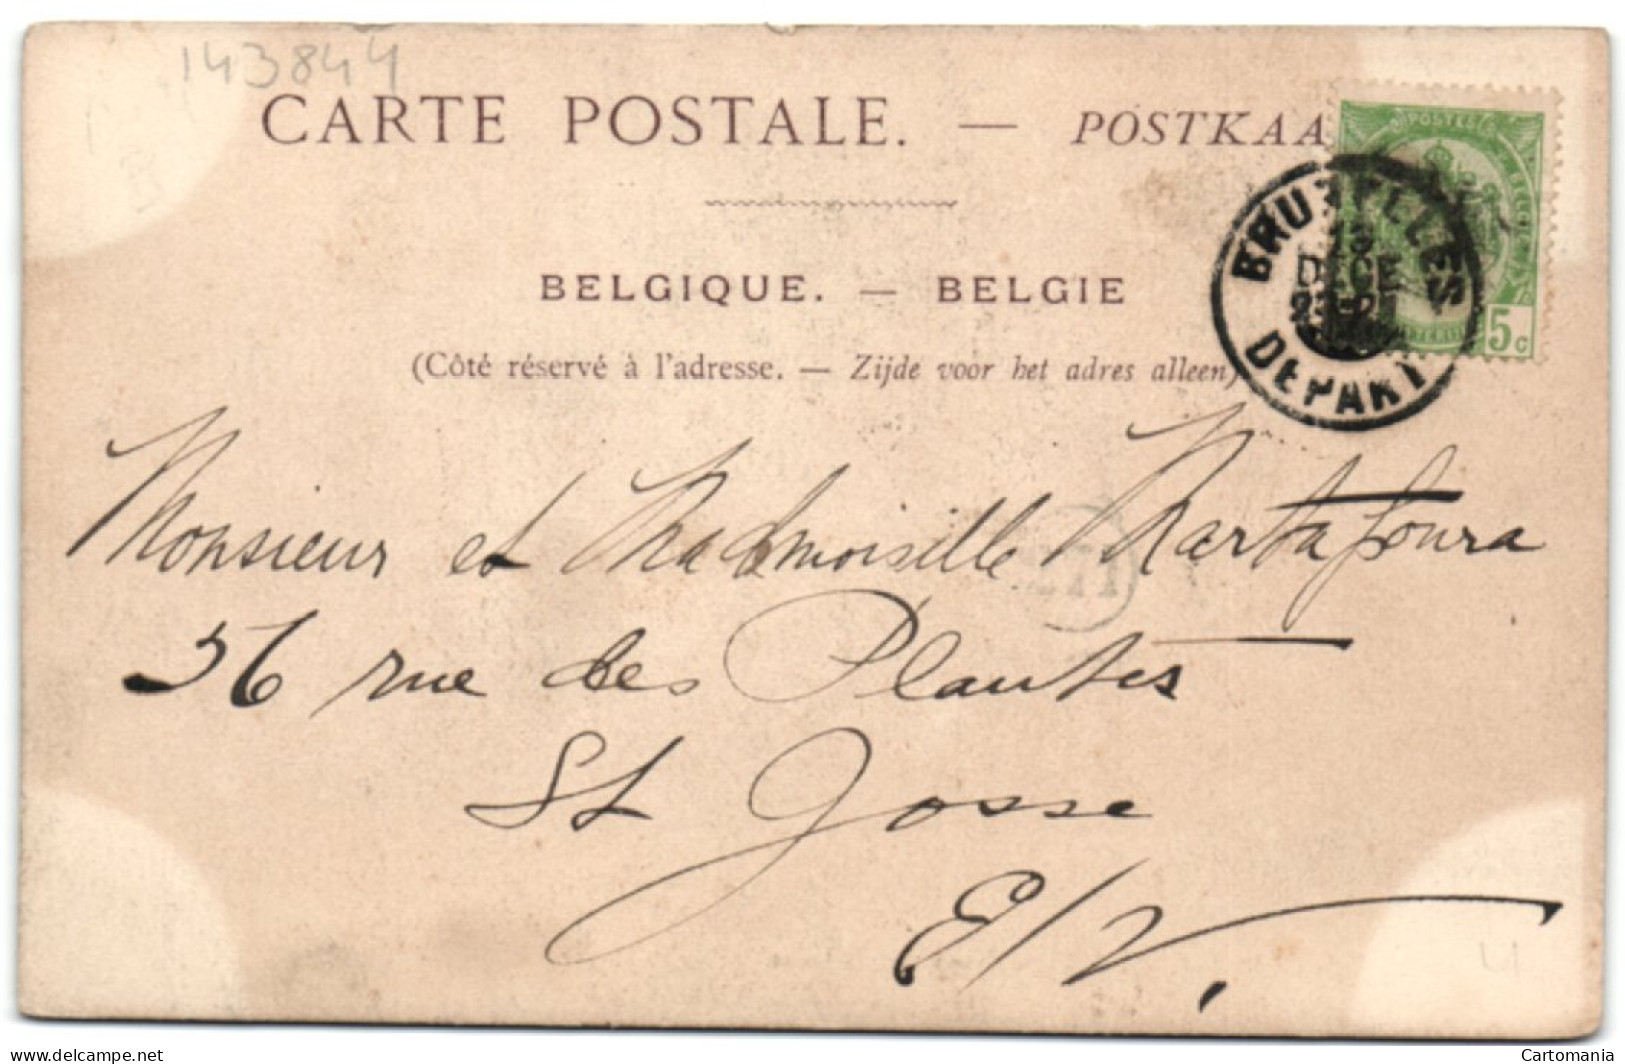 143844
CARTE POSTALE. — POSTKAA
POSTES
BRUXELLES
13
DECE
DEPART
5c
BELGIQUE. — BELGIE
(Côté réservé à l'adresse. — Zijde voor het adres alleen)
Monsieur et Mademoiselle Martafoura
36 rue des Plantes
St Josse
E/V.
delcampe.net
Cartomania